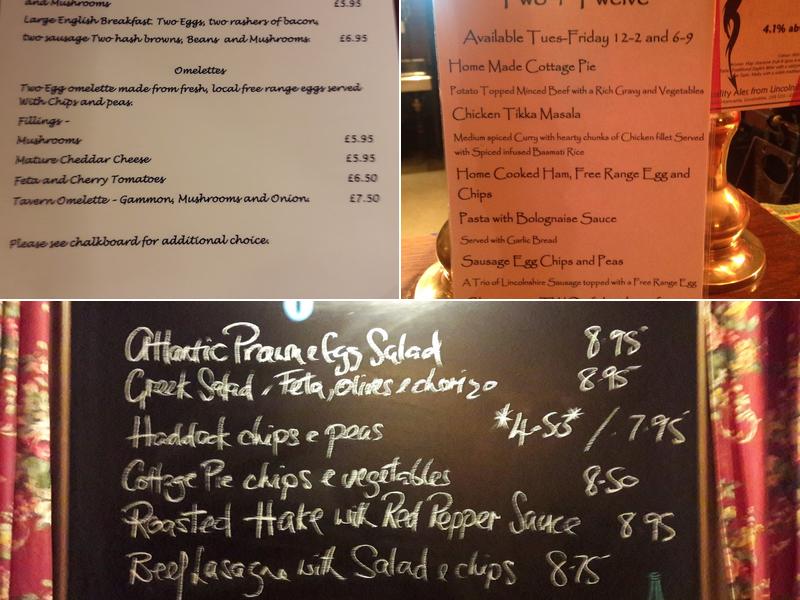 and Mushrooms £5.95
Large English Breakfast. Two Eggs, two rashers of bacon,
two sausage Two hash browns, Beans and Mushrooms. £6.95
Omelettes
Two Egg omelette made from fresh, local free range eggs served
With Chips and peas.
Fillings -
Mushrooms £5.95
Mature Cheddar Cheese £5.95
Feta and Cherry Tomatoes £6.50
Tavern Omelette - Gammon, Mushrooms and Onion. £7.50
Please see chalkboard for additional choice.
Twelve
Available Tues-Friday 12-2 and 6-9
Home Made Cottage Pie
Potato Topped Minced Beef with a Rich Gravy and Vegetables
Chicken Tikka Masala
Medium spiced Curry with hearty chunks of Chicken fillet Served
with Spiced infused Basmati Rice
Home Cooked Ham, Free Range Egg and
Chips
Pasta with Bolognaise Sauce
Served with Garlic Bread
Sausage Egg Chips and Peas
A Trio of Lincolnshire Sausage topped with a Free Range Egg
4.1% ab
Ales from Lincoln
Atlantic Prawn e Egg Salad 8.95
Greek Salad, Feta, olives e chorizo 8.95
Haddock chips e peas *4.53* / 7.95
Cottage Pie chips e vegetables 8.50
Roasted Hake with Red Pepper Sauce 8 95
Beef Lasagne with Salad e chips 8.75